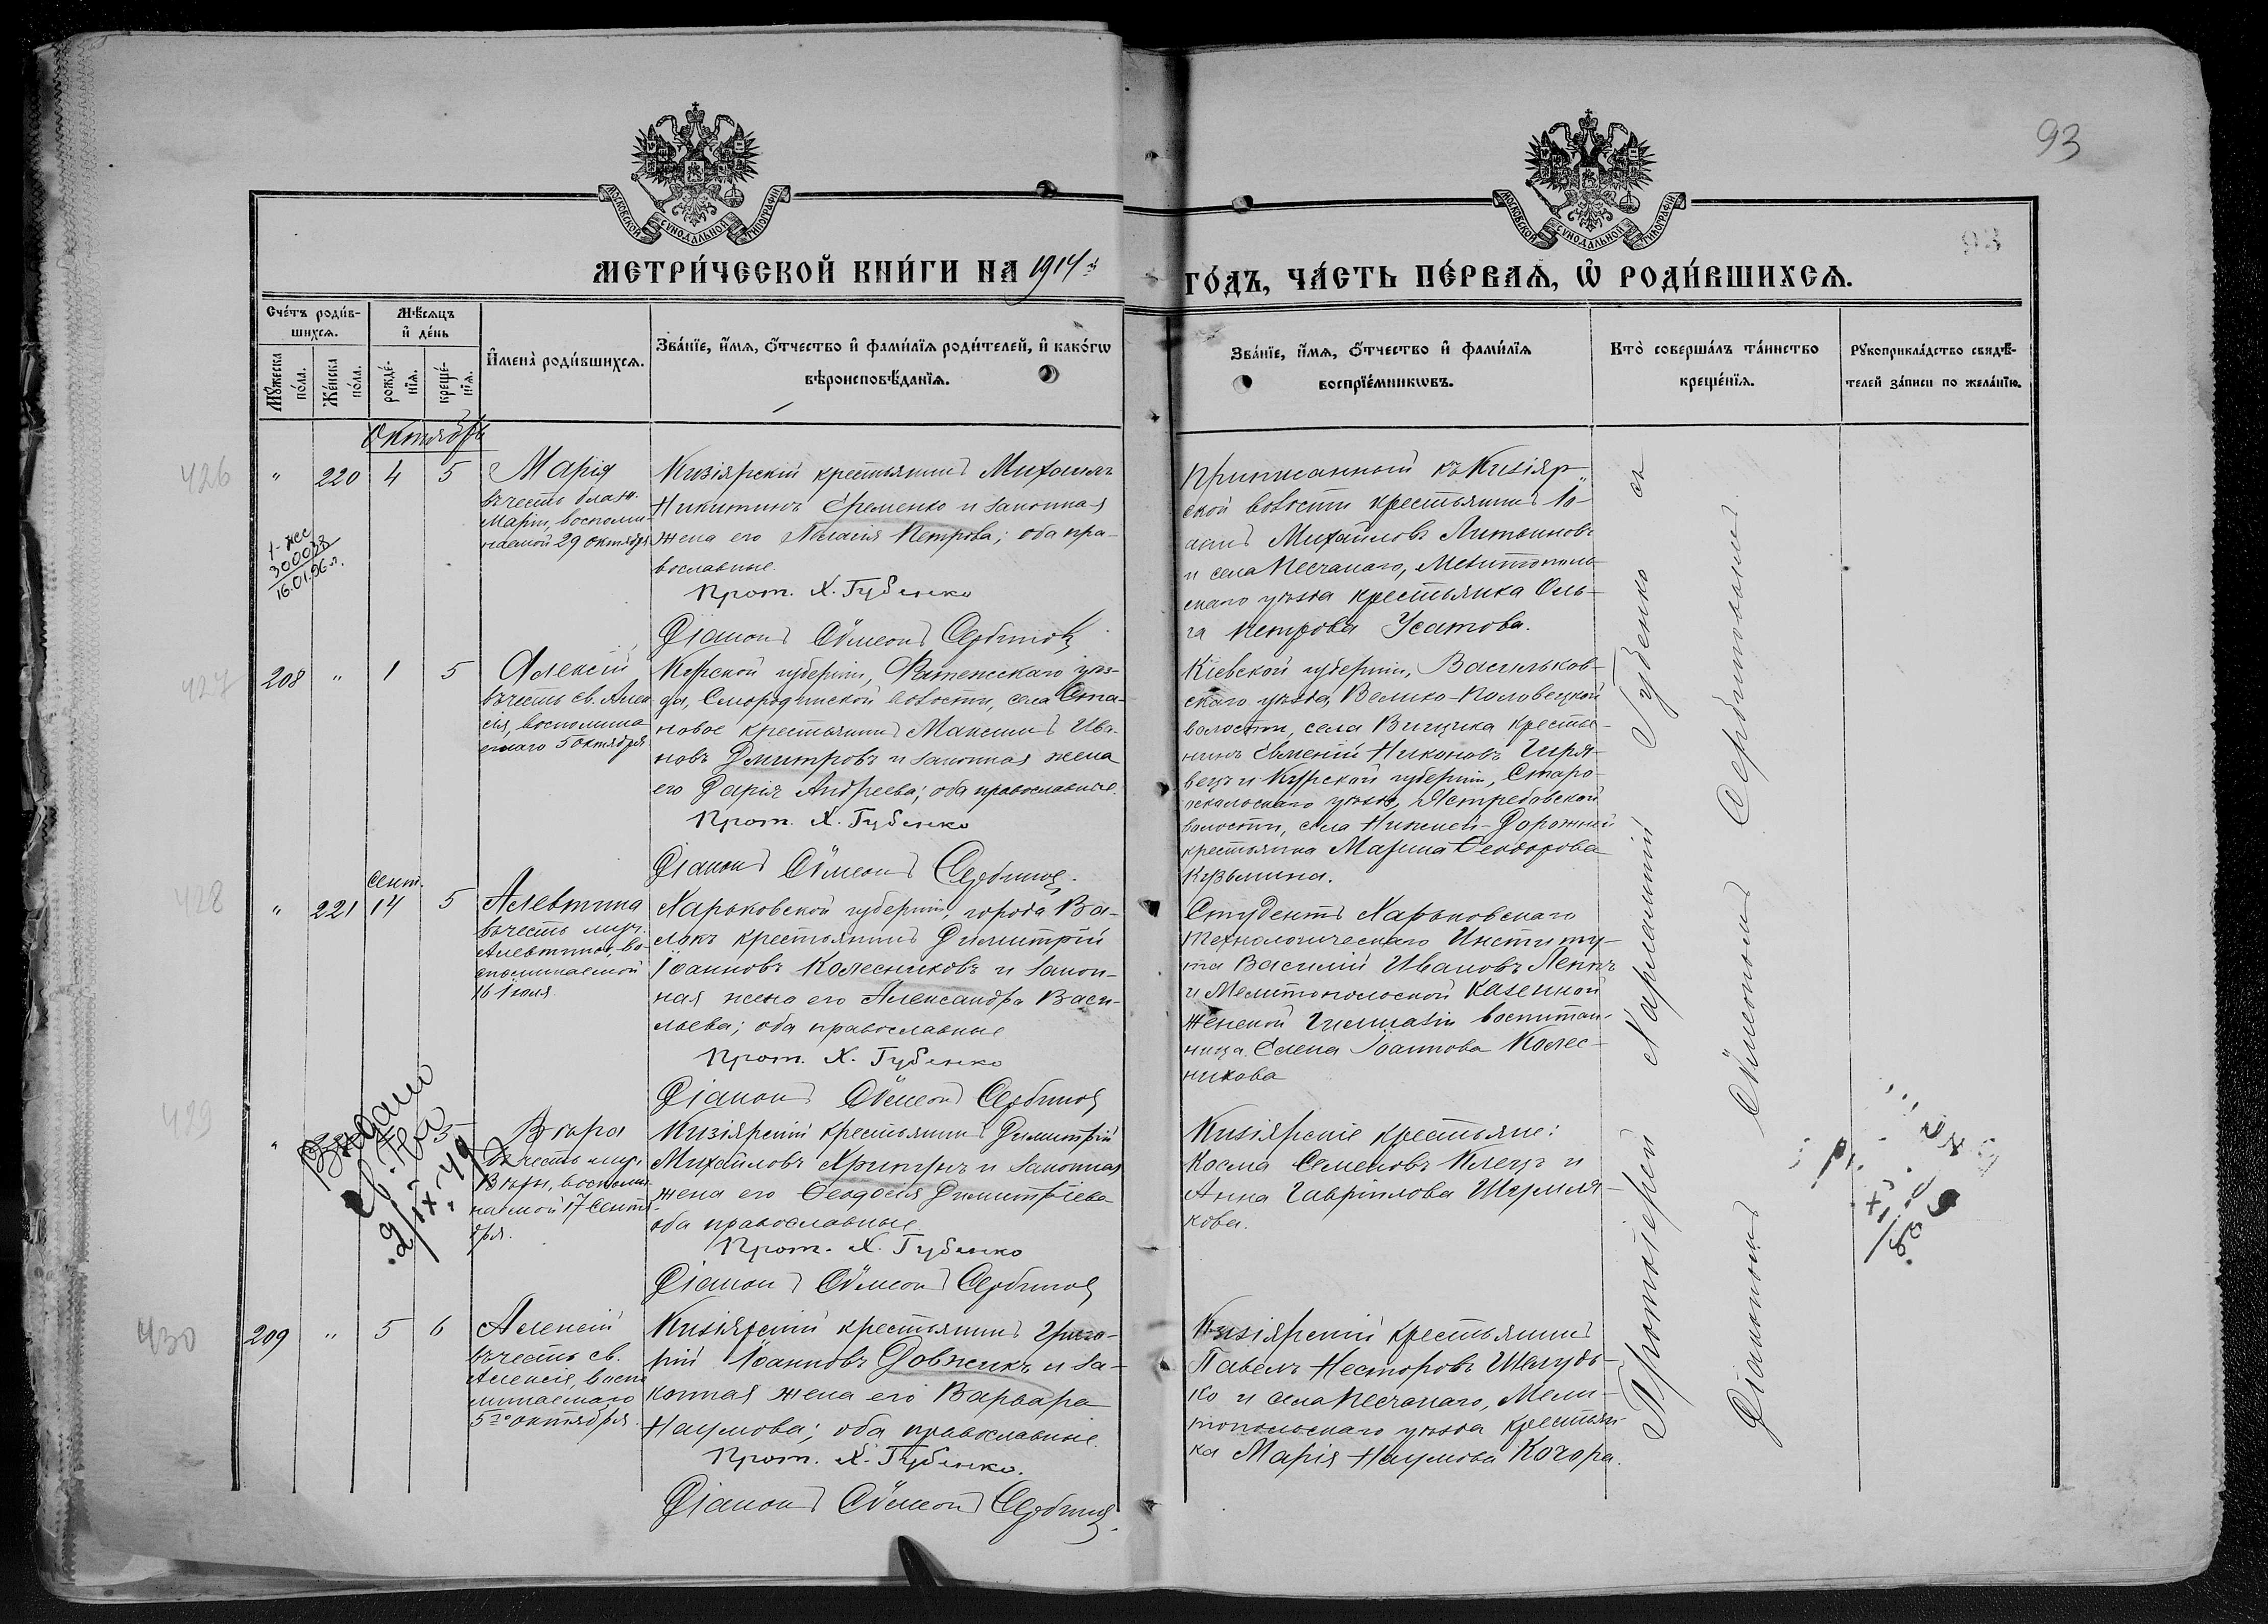 93
93
МОСКОВСКОЙ СѴНОДАЛЬНОЙ ТИПОГРАФІИ
МОСКОВСКОЙ СѴНОДАЛЬНОЙ ТИПОГРАФІИ
МЕТРИ́ЧЕСКОЙ КНИ́ГИ НА 1914й
ГО́ДЪ, ЧА́СТЬ ПЕ́РВАѦ, Ѡ҆ РОДИ́ВШИХСѦ.
Сче́тъ роди́в-
шихсѧ.
Мꙋ́жеска
по́ла.
Же́нска
по́ла.
Мѣ́сѧцъ
и҆ де́нь
рожде́-
нїѧ.
креще́-
нїѧ.
И҆мена̀ роди́вшихсѧ.
Зва́нїе, и҆́мѧ, ѻ҆́тчество и҆ фами́лїѧ роди́телей, и҆ како́гѡ
вѣроисповѣ́данїѧ.
Зва́нїе, и҆́мѧ, ѻ҆́тчество и҆ фами́лїѧ
воспрїе́мникѡвъ.
Кто̀ соверша́лъ та́инство
креще́нїѧ.
Рꙋкоприкла́дство свидѣ́-
телей за́писи по жела́нїю.
Октябрь
426
" 220 4 5
Марія
въ честь блаж.
Маріи, воспоми-
наемой 29 октября
1-жс
300028
16.01.96г.
Кизіярскій крестьянинъ Михаилъ
Никитинъ Еременко и законная
жена его Пелагія Петрова; оба пра-
вославные.
Прот. Х. Губенко
Діаконъ Сѵмеонъ Сербиновъ
Приписанный къ Кизіяр-
ской волости крестьянинъ Іо-
аннъ Михайловъ Литвиновъ
и села Песчанаго, Мелитополь-
скаго уѣзда крестьянка Оль-
га Петрова Усатова.
427
208 " 1 5
Алексій
въ честь св. Алек
сія, воспомина
емаго 5 октября
Курской губерніи, Фатежскаго уѣз-
да, Смородинской волости, села Ста-
новое крестьянинъ Максимъ Ива-
новъ Дмитровъ и законная жена
его Дарія Андреева; оба православные.
Прот. Х. Губенко
Діаконъ Сѵмеонъ Сербиновъ.
Кіевской губерніи, Васильков-
скаго уѣзда, Велико-Половецкой
волости, села
нинъ Евменій Никоновъ
вецъ и Курской губерніи, Старо-
оскольскаго уѣзда, Ястребовской
волости, села Нижней-Дорожней
крестьянка Марина Ѳеодорова
Кузьмина.
428
" 221
Сент.
14 5
Алевтина
въ честь муч.
Алевтины, во-
споминаемой
16 Іюля
Харьковской губерніи, города Ва-
локъ крестьянинъ Димитрій
Іоанновъ Колесниковъ и закон-
ная жена его Александра Васи-
льева; оба православные
Прот. Х. Губенко
Діаконъ Сѵмеонъ Сербиновъ
Студентъ Харьковскаго
Технологическаго Институ-
та Василій Ивановъ
и Мелитопольской казенной
женской гимназіи воспитан-
ница Елена Іоаннова Колес-
никова
429
Выдано
2/IX-49
Вѣра
въ честь муч.
Вѣры, воспоми-
наемой 17 Сентя-
бря.
Кизіярскій крестьянинъ Димитрій
Михайловъ и законная
жена его Ѳеодосія Димитріева
оба православные
Прот. Х. Губенко
Діаконъ Сѵмеонъ Сербиновъ
Кизіярскіе крестьяне:
Косма Семеновъ Клецъ и
Анна Гавріилова
кова.
430
209 " 5 6
Алексій
въ честь св.
Алексія, воспо
минаемаго
5го октября.
Кизіярскій крестьянинъ Григо-
рій Іоанновъ Довжикъ и за-
конная жена его Варвара
Наумова; оба православные.
Прот. Х. Губенко.
Діаконъ Сѵмеонъ Сербиновъ.
Кизіярскій крестьянинъ
Павелъ Несторовъ Шелудь-
ко и села Песчанаго, Мели-
топольскаго уѣзда крестьян-
ка Марія Наумова Кочора.
Протоіерей Харлампій Губенко съ
Діакономъ Сѵмеономъ Сербиновымъ